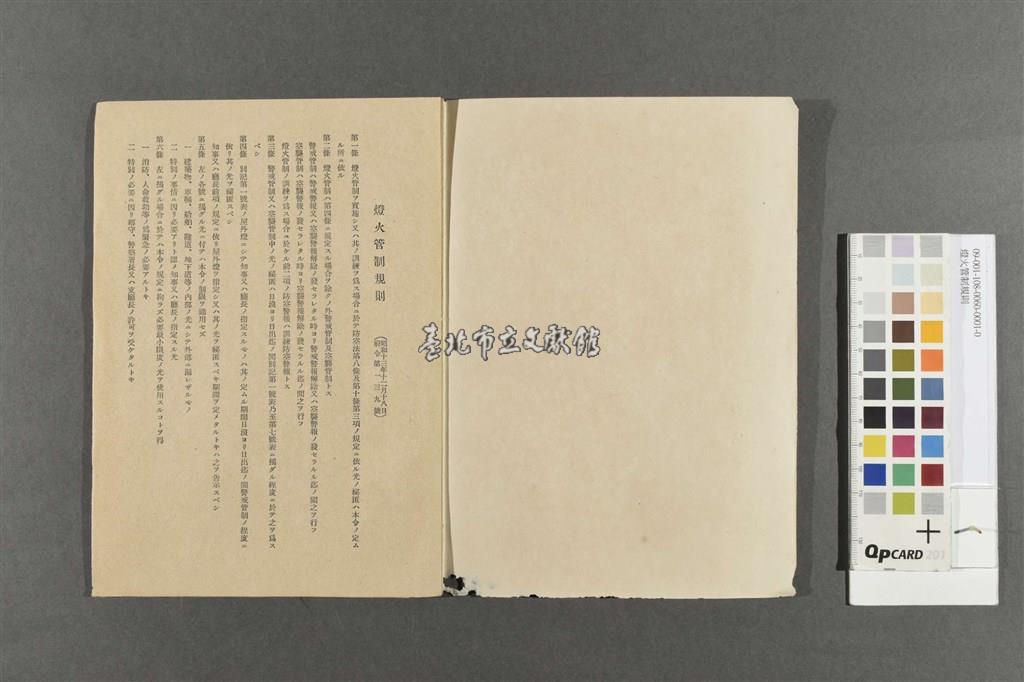 燈火管制規則
昭和十三年十二月十八日
府令第一三九號
第一條 燈火管制ヲ實施シ又ハ其ノ訓練ヲ爲ス場合ニ於テ防空法第八條及第十條第三項ノ規定ニ依ル光ノ祕匿ハ本令ノ定ム
ル所ニ依ル
第二條 燈火管制ハ第四條ニ規定スル場合ヲ除クノ外警戒管制及空襲管制トス
警戒管制ハ警戒警報又ハ空襲警報解除ノ發セラレタル時ヨリ警戒警報解除又ハ空襲警報ノ發セラルル迄ノ間之ヲ行フ
空襲管制ハ空襲警報ノ發セラレタル時ヨリ空襲警報解除ノ發セラルル迄ノ間之ヲ行フ
燈火管制ノ訓練ヲ爲ス場合ニ於ケル前二項ノ防空警報ハ訓練防空警報トス
第三條 警戒管制又ハ空襲管制中ノ光ノ祕匿ハ日沒ヨリ日出迄ノ間別記第一號表乃至第七號表ニ揭グル程度ニ於テ之ヲ爲ス
ベシ
第四條 別記第一號表ノ屋外燈ニシテ知事又ハ廳長ノ指定スルモノハ其ノ定ムル期間日沒ヨリ日出迄ノ間警戒管制ノ程度ニ
依リ其ノ光ヲ祕匿スベシ
知事又ハ廳長前項ノ規定ニ依リ屋外燈ヲ指定シ又ハ其ノ光ヲ祕匿スベキ期間ヲ定メタルトキハ之ヲ告示スベシ
第五條 左ノ各號ニ揭グル光ニ付テハ本令ノ制限ヲ適用セズ
一 建築物、車輛、船舶、隧道、地下道等ノ內部ノ光ニシテ外部ニ漏レザルモノ
二 特別ノ事情ニ因リ必要アリト認メ知事又ハ廳長ノ指定スル光
第六條 左ニ揭グル場合ニ於テハ本令ノ規定ニ拘ラズ必要最小限度ノ光ヲ使用スルコトヲ得
一 消防、人命救助等ノ爲緊急ノ必要アルトキ
二 特別ノ必要ニ因リ郡守、警察署長又ハ支廳長ノ許可ヲ受ケタルトキ
臺北市立文獻館
09-001-108-0060-0001-0
燈火管制規則
QPCARD 201